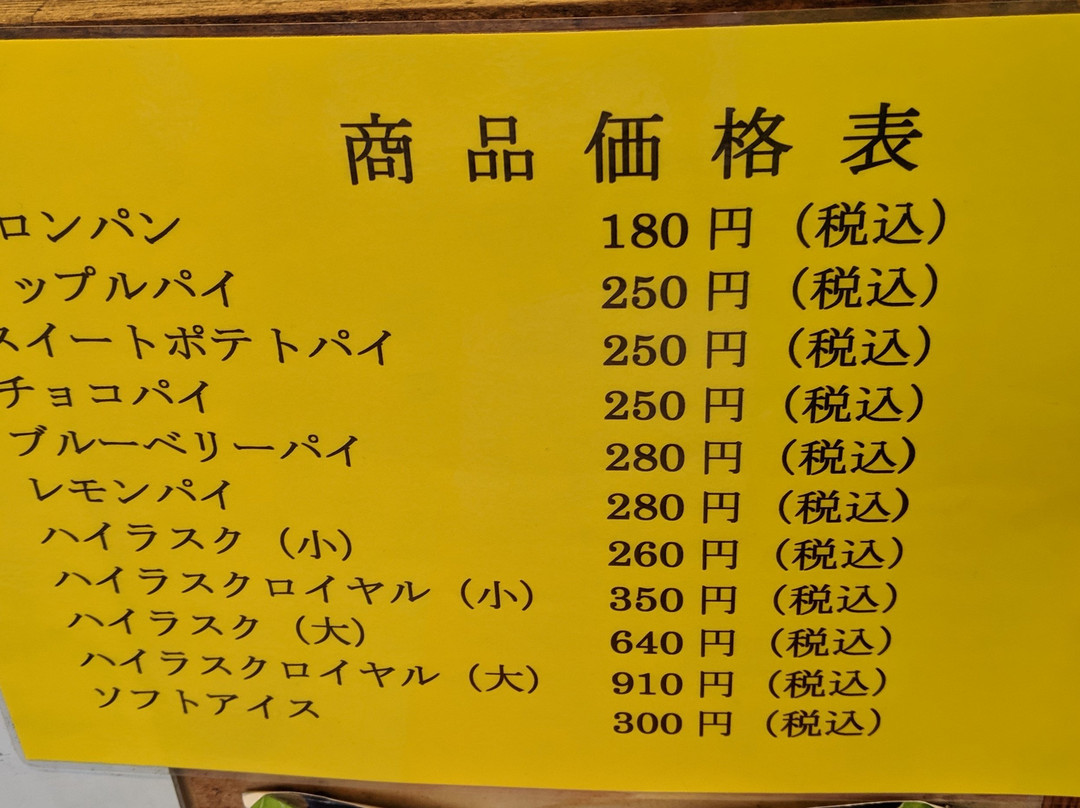 商品価格表
ロンパン 180円 (税込)
ップルパイ 250円 (税込)
スイートポテトパイ 250円 (税込)
チョコパイ 250円 (税込)
ブルーベリーパイ 280円 (税込)
レモンパイ 280円 (税込)
ハイラスク (小) 260円 (税込)
ハイラスクロイヤル (小) 350円 (税込)
ハイラスク (大) 640円 (税込)
ハイラスクロイヤル (大) 910円 (税込)
ソフトアイス 300円 (税込)